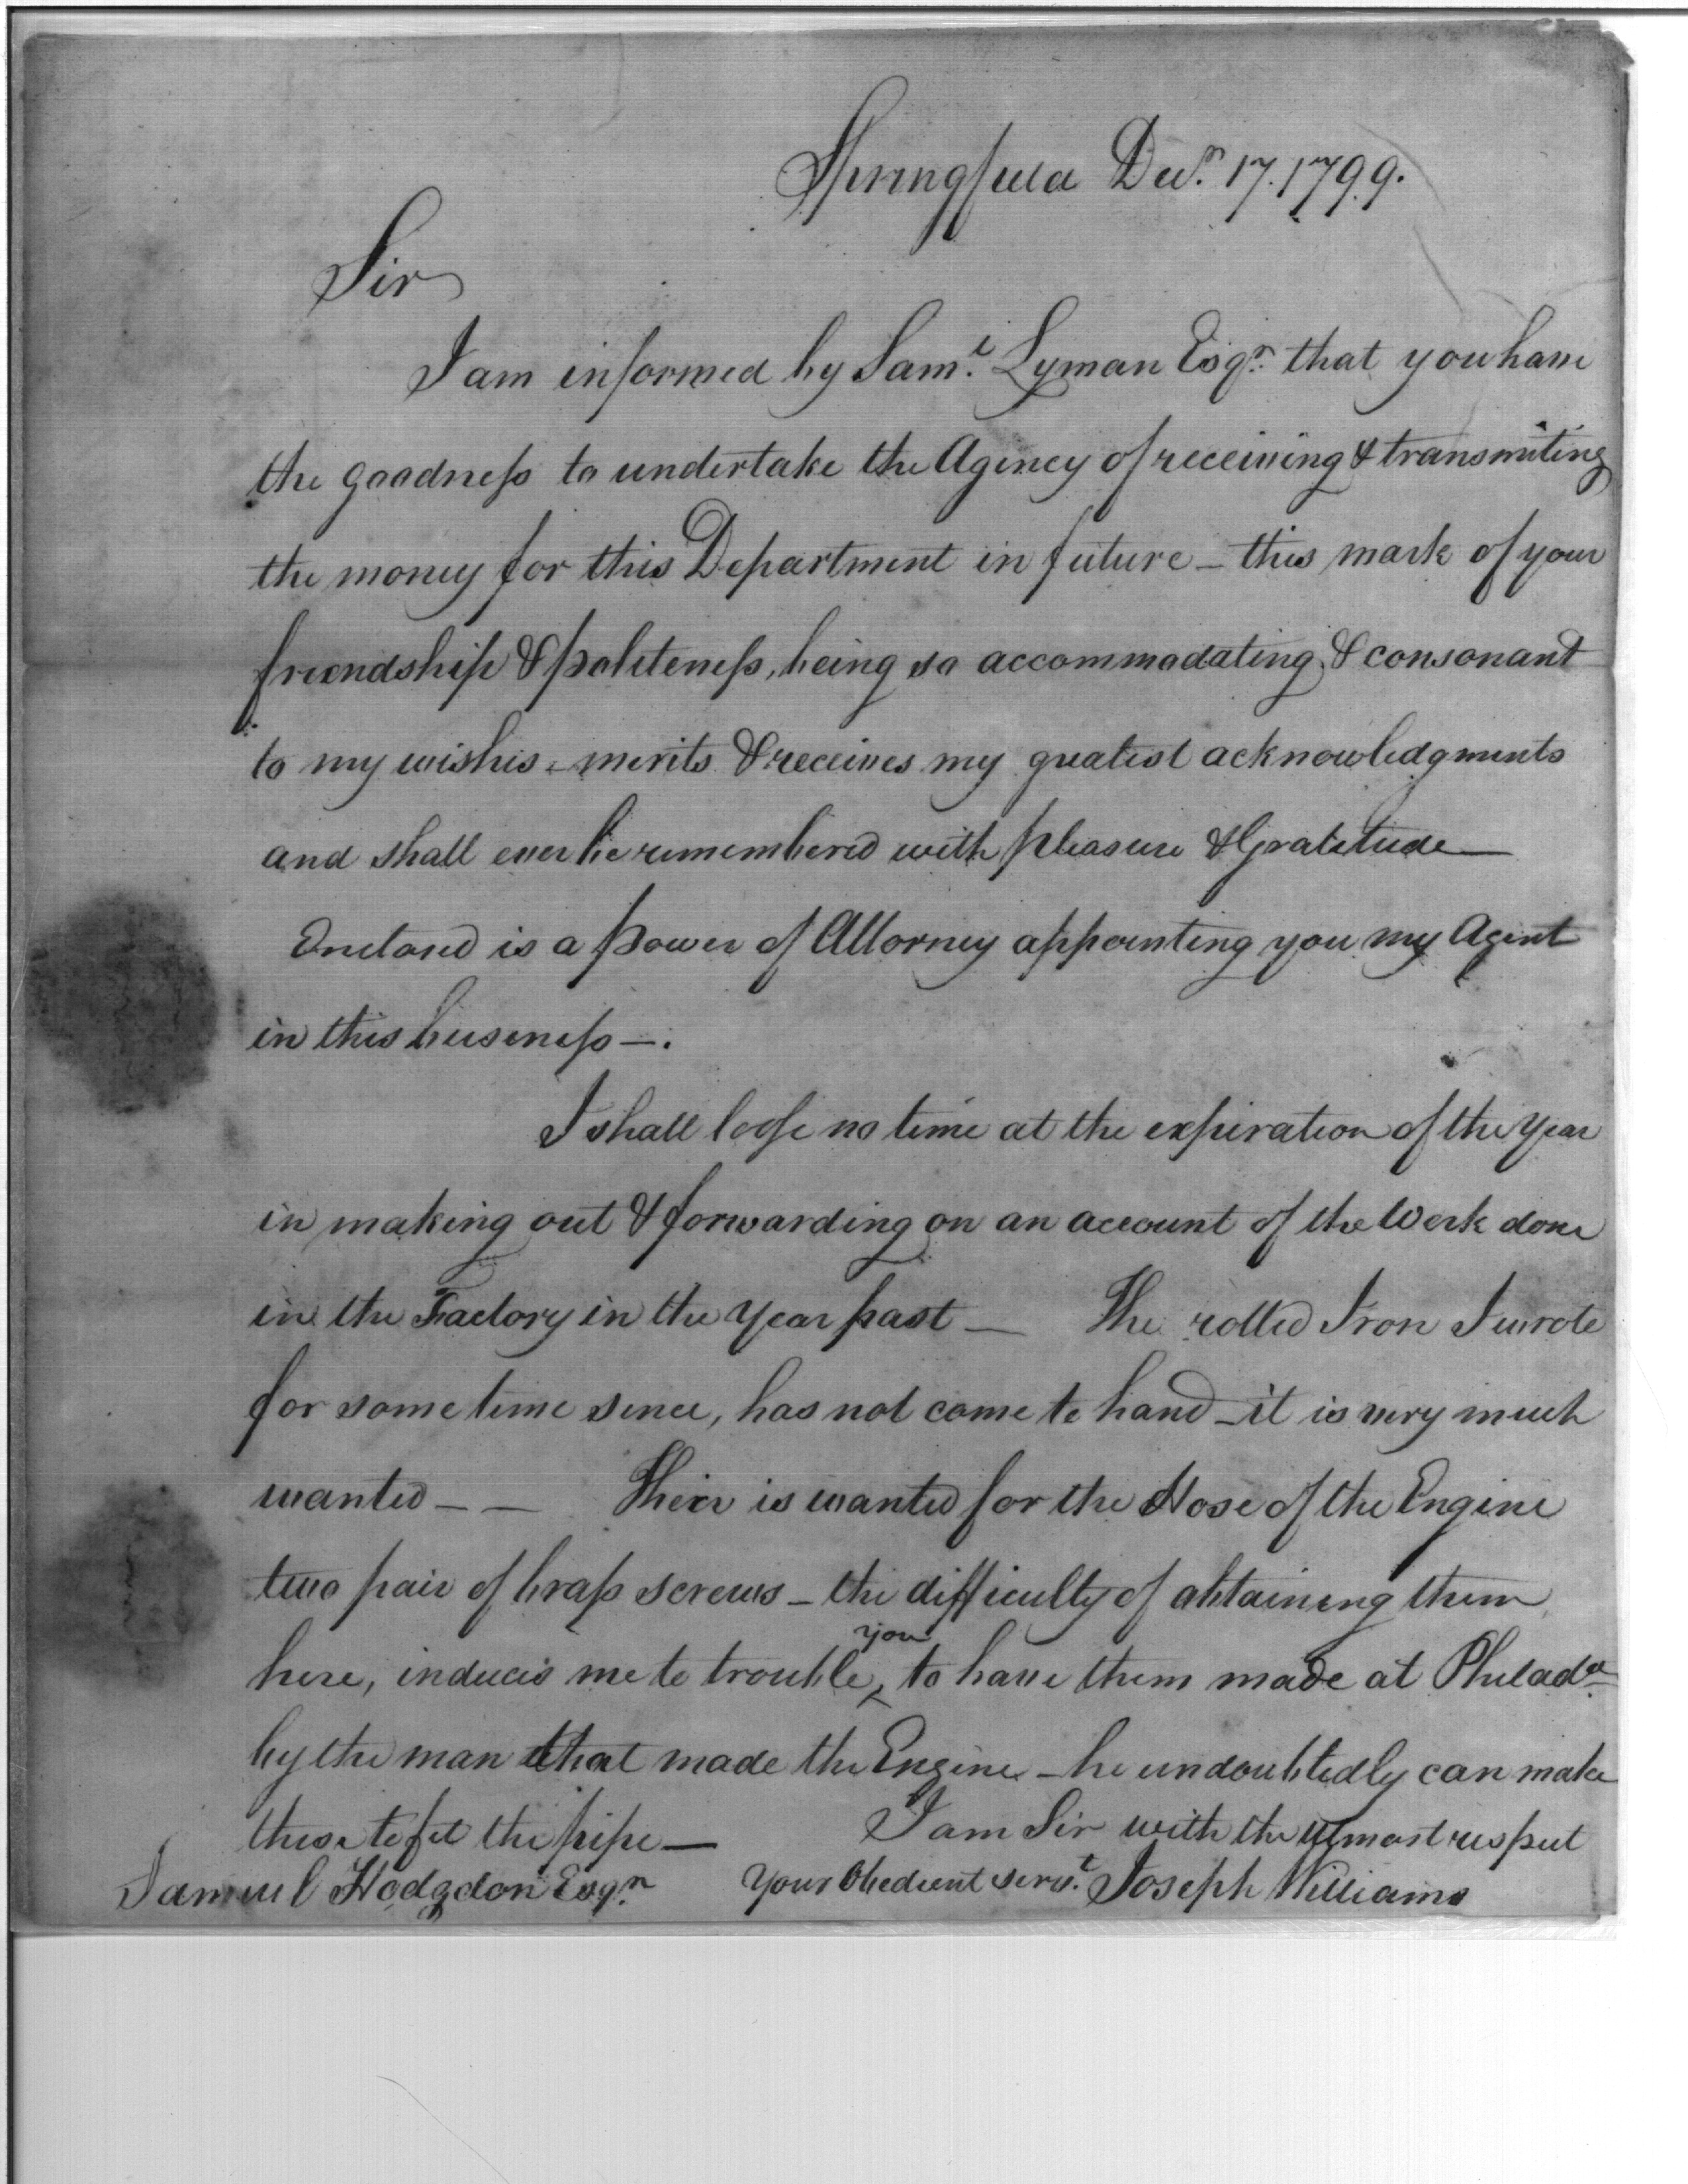 Springfield Decr. 17. 1799.
Sir
I am informed by Saml. Lyman Esqr. that you have
the goodness to undertake the Agency of receiving & transmiting
the money for this Department in future – this mark of your
friendship & politeness, being so accommodating & consonant
to my wishes – merits & receives my greatest acknowledgments
and shall ever be remembered with pleasure & Gratitude —
Enclosed is a power of Attorney appointing you my Agent
in this business —.
I shall losse no time at the expiration of the Year
in making out & forwarding on an account of the Work done
in the Factory in the Year past — The rolled Iron I wrote
for some time since, has not come to hand – it is very much
wanted – — Their is wanted for the Hose of the Engine
two pair of brass screws – the difficulty of obtaining them
here, induces me to trouble ^you to have them made at Philada
by the man that made the Engine – he undoubtedly can make
those to fit the pipe — I am Sir with the utmost respect
Samuel Hodgdon Esqr. Your Obedient servt. Joseph Williams